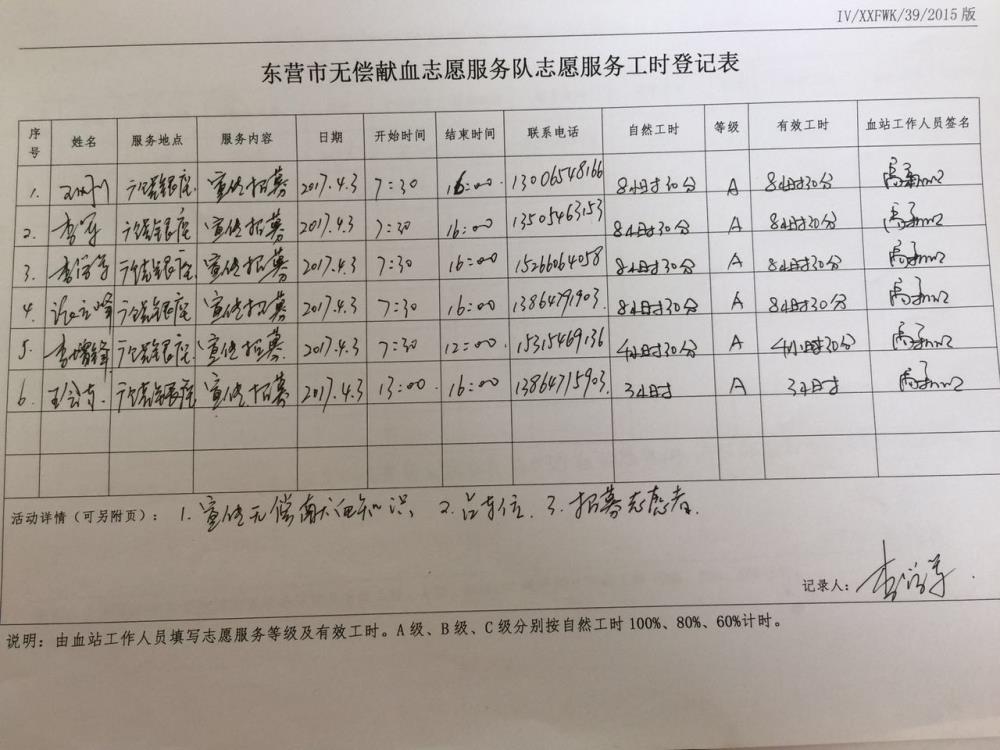 IV/XXFWK/39/2015版
东营市无偿献血志愿服务队志愿服务工时登记表
序号 姓名 服务地点 服务内容 日期 开始时间 结束时间 联系电话 自然工时 等级 有效工时 血站工作人员签名
1. 银座 宣传招募 2017.4.3 7:30 16:00 13006548166 8小时30分 A 8小时30分
2. 李军 银座 宣传招募 2017.4.3 7:30 16:00 13505463153 8小时30分 A 8小时30分
3. 银座 宣传招募 2017.4.3 7:30 16:00 15266064058 8小时30分 A 8小时30分
4. 银座 宣传招募 2017.4.3 7:30 16:00 13864791903. 8小时30分 A 8小时30分
5. 李增锋 银座 宣传招募 2017.4.3 7:30 12:00 15315469136 4小时30分 A 4小时30分
6. 银座 宣传招募 2017.4.3 13:00 16:00 13864715903. 3小时 A 3小时
活动详情（可另附页）： 1. 宣传无偿献血知识 2. 3. 招募志愿者.
记录人：
说明：由血站工作人员填写志愿服务等级及有效工时。A级、B级、C级分别按自然工时100%、80%、60%计时。